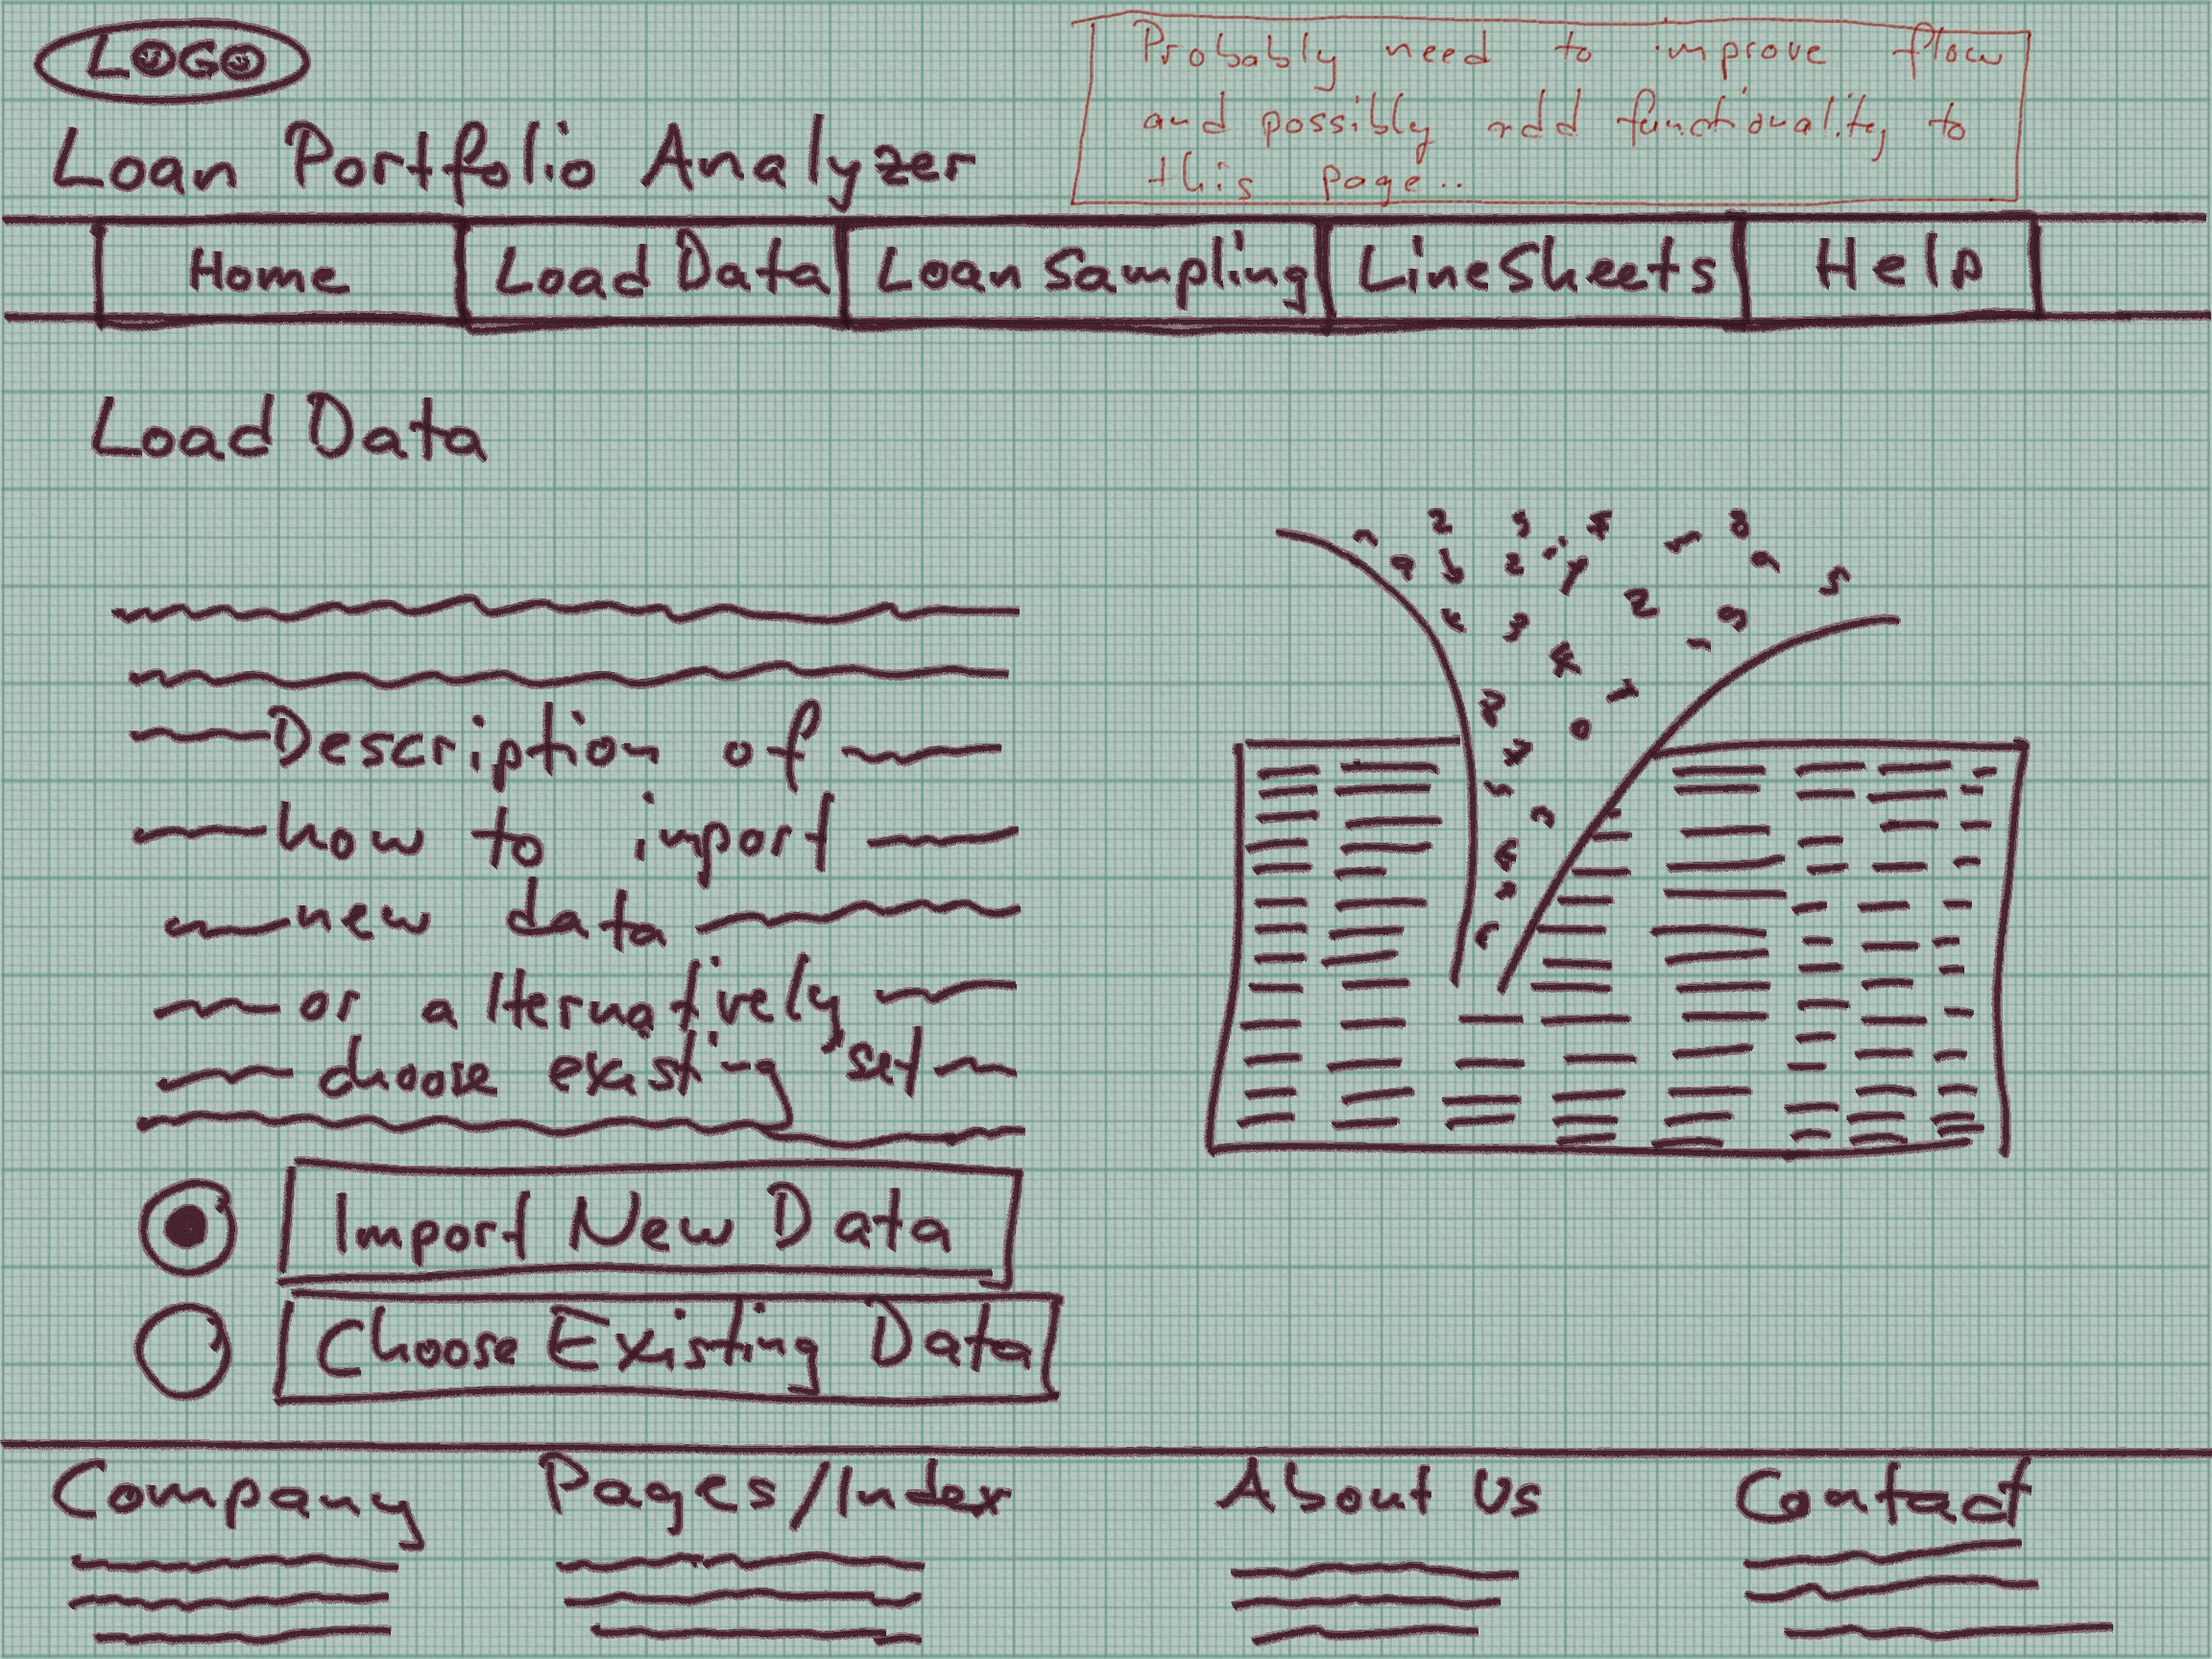 LOGO
Loan Portfolio Analyzer
Probably need to improve flow
and possibly add functionality to
this page..
Home
Load Data
Loan Sampling
LineSheets
Help
Load Data
Description of
how to import
new data
or alternatively
choose existing set
Import New Data
Choose Existing Data
Company
Pages/Index
About Us
Contact